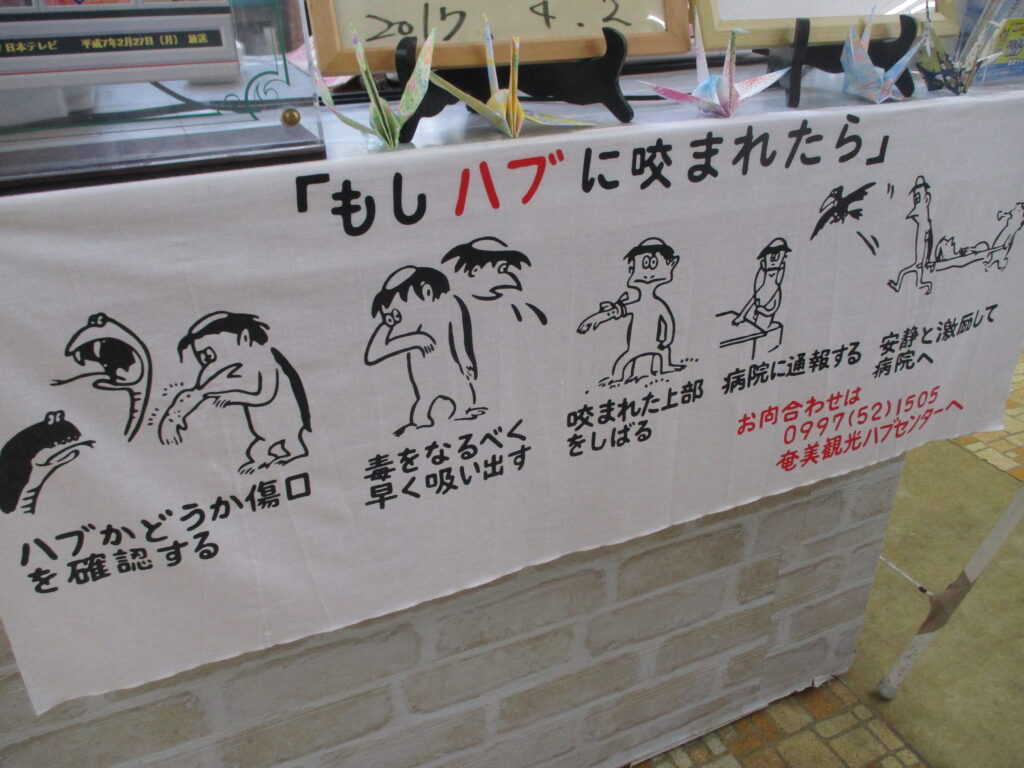 日本テレビ 平成7年2月27日(月) 放送
2017 4.2
「もしハブに咬まれたら」
ハブかどうか傷口
を確認する
毒をなるべく
早く吸い出す
咬まれた上部
をしばる
病院に通報する
安静と激励して
病院へ
お向合わせは
0997(52)1505
奄美観光ハブセンターへ